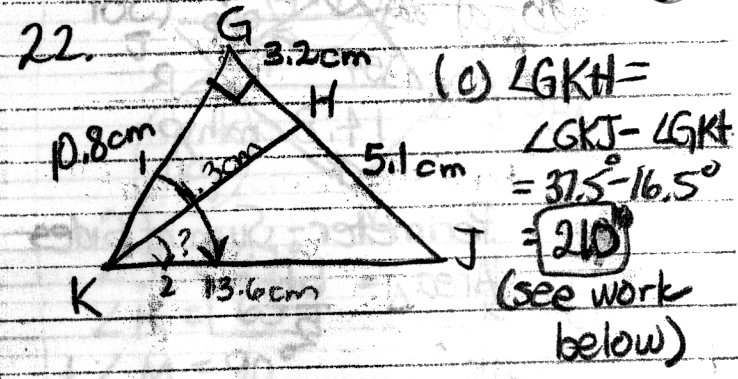 22.
G
3.2cm
H
10.8cm
1
11.3cm
5.1cm
?
K
2
13.6cm
J
(c) ∠GKH=
∠GKJ- ∠GKH
= 37.5°-16.5°
= 21.0°
(see work
below)